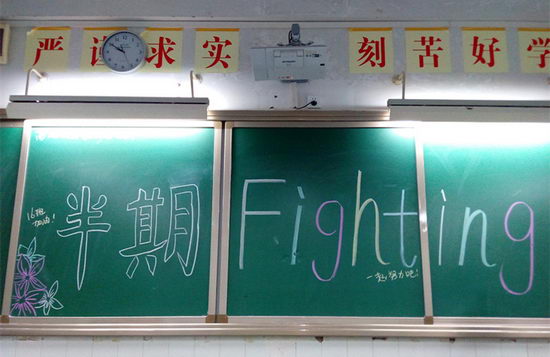 严谨求实 刻苦好学
半期 Fighting
16班
加油!
一起努力吧!